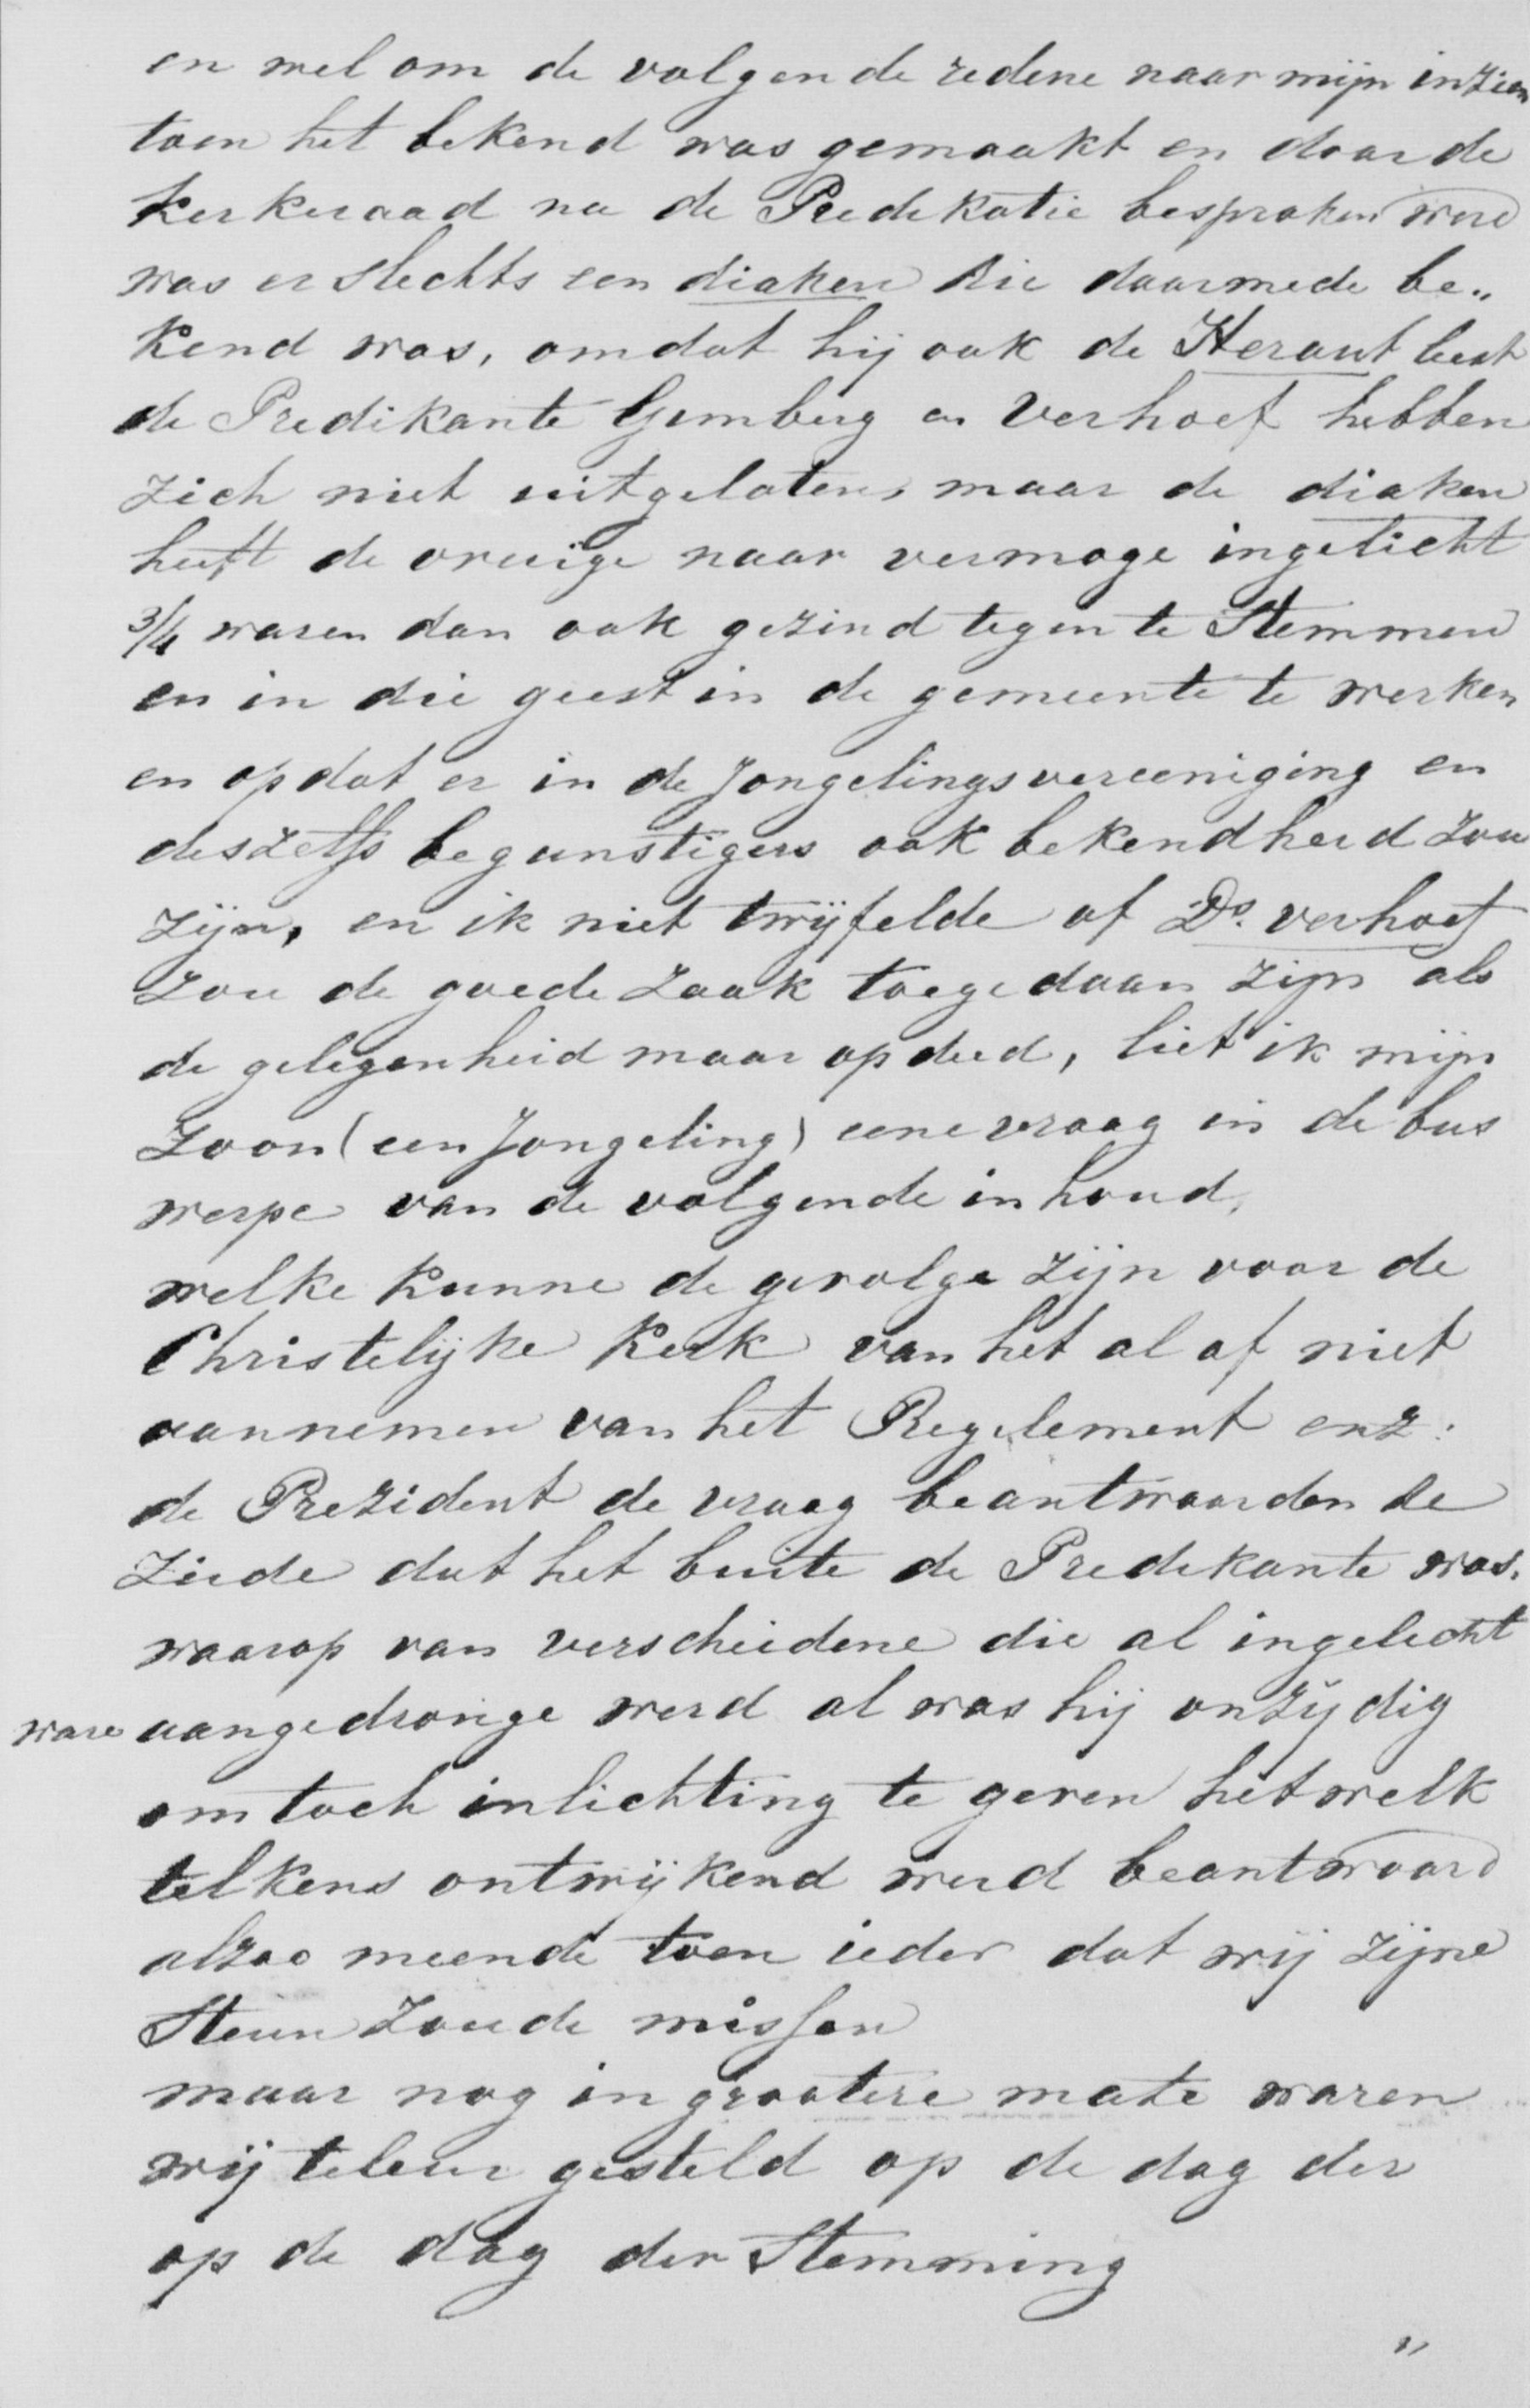 en wel om de volgende redene naar mijn inzien
toen het bekend was gemaakt en door de
kerkeraad na de Predikatie besproken werd
was er slechts een diaken die daarmede be„
kend was, omdat hij ook de Heraut leest
de Predikante Gumbug en Verhoef hebben
zich niet uitgelaten, maar de diaken
heeft de overige naar vermoge ingelicht
3/4 waren dan ook gezind tegen te Stemmen
en in die geest in de gemeente te werken
en opdat er in de Jongelingsvereeniging en
deszelfs begunstigers ook bekendheid zou
zijn, en ik niet twijfelde of Ds. verhoef
zou de goede zaak toegedaan zijn als
de gelegenheid maar op deed, liet ik mijn
Zoon (een Jongeling) eene vraag in de bus
werpe van de volgende inhoud,
welke kunne de gevolge zijn voor de
Christelijke Kerk van het al of niet
aannemen van het Regelement enz:
de Prezident de vraag beantwoorden de
Ziede dat het buite de Predekante was.
waarop van verscheidene die al ingelecht
ware aangedronge werd al was hij onzijdig
om toch inlichting te geven hetwelk
telkens ontwijkend werd beantwoord
alzoo meende toen ieder dat wij zijne
Steun zoude missen
maar nog in grootere mate waren
wij teleur gesteld op de dag der
op de dag der Stemming
„